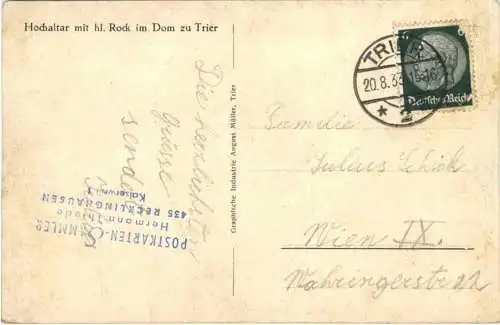 Hochaltar mit hl. Rock im Dom zu Trier
TRIER
20.8.33
* 2
6
Deutsches Reich
Die herzlichsten
Grüsse
sendet
Graphische Industrie August Müller, Trier
POSTKARTEN-SAMMLER
Hermann Thiede
435 RECKLINGHAUSEN
Kaiserwall
Familie
Julius Schick
Wien IX.
Währingerstr